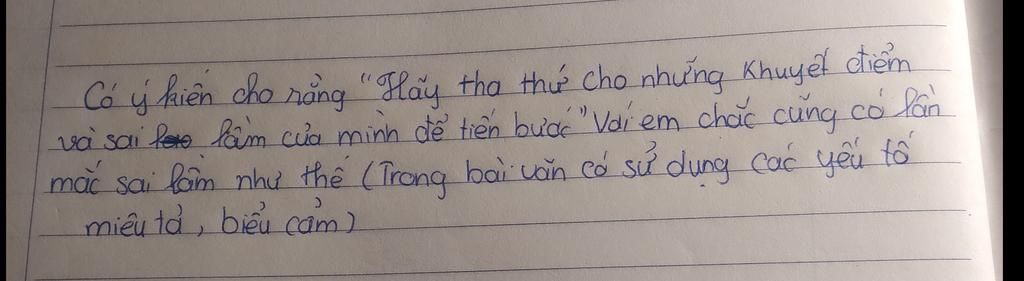 Có ý kiến cho rằng "Hãy tha thứ cho những khuyết điểm
và sai lầm của mình để tiến bước" Với em chắc cũng có lần
mắc sai lầm như thế (Trong bài văn có sử dụng các yếu tố
miêu tả, biểu cảm)